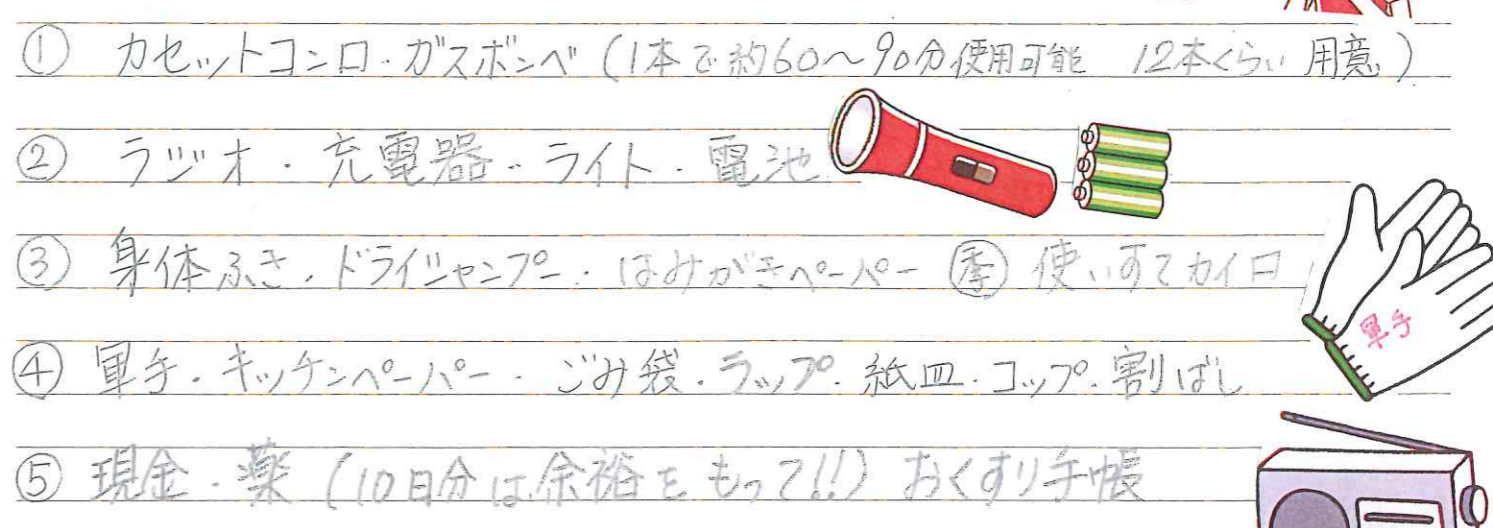 ① カセットコンロ・ガスボンベ (1本で約60〜90分使用可能 12本くらい用意)
② ラジオ・充電器・ライト・電池
③ 身体ふき・ドライシャンプー・はみがきペーパー ㊝ 使いすてカイロ
④ 軍手・キッチンペーパー・ごみ袋・ラップ・紙皿・コップ・割ばし
軍手
⑤ 現金・薬 (10日分は余裕をもって!!) おくすり手帳